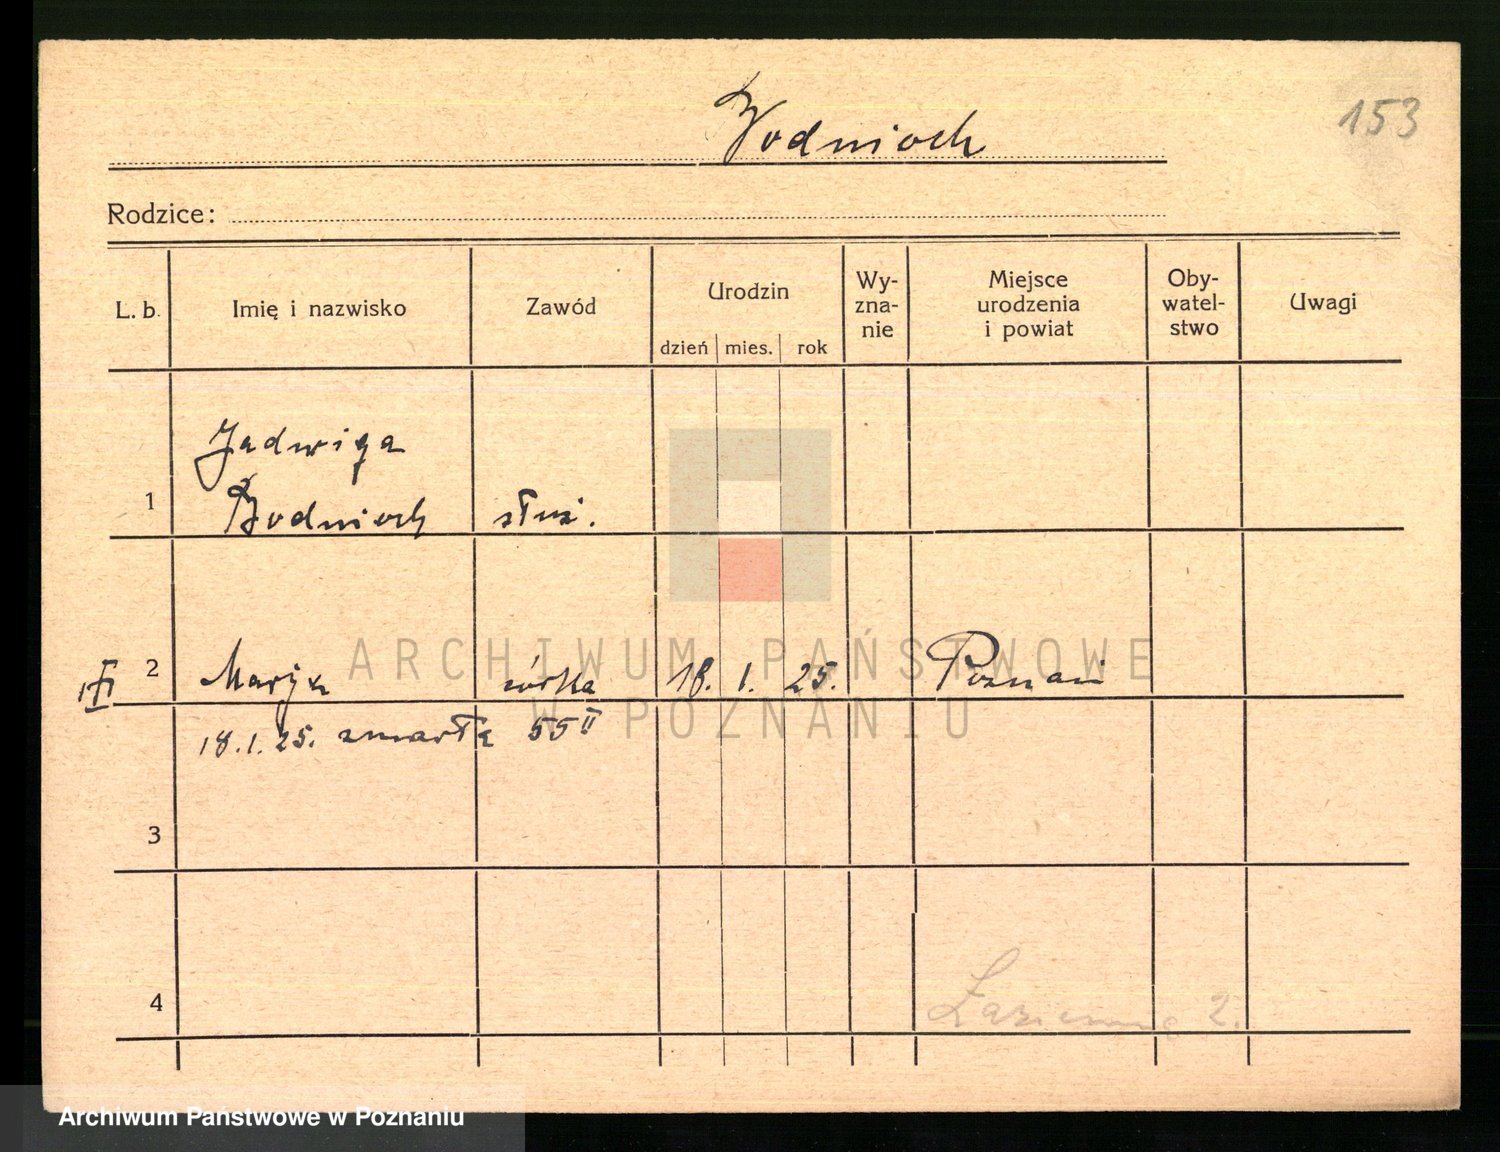 Bodnioch
153
Rodzice:
L. b.
Imię i nazwisko
Zawód
Urodzin
dzień mies. rok
Wy-
zna-
nie
Miejsce
urodzenia
i powiat
Oby-
watel-
stwo
Uwagi
Jadwiga
1 Bodnioch służ.
2 Marja córka 18. 1. 25. Poznań
18.1.25. zmarła 55 II
3
4
Łazienna 2.
ARCHIWUM PAŃSTWOWE
W POZNANIU
Archiwum Państwowe w Poznaniu